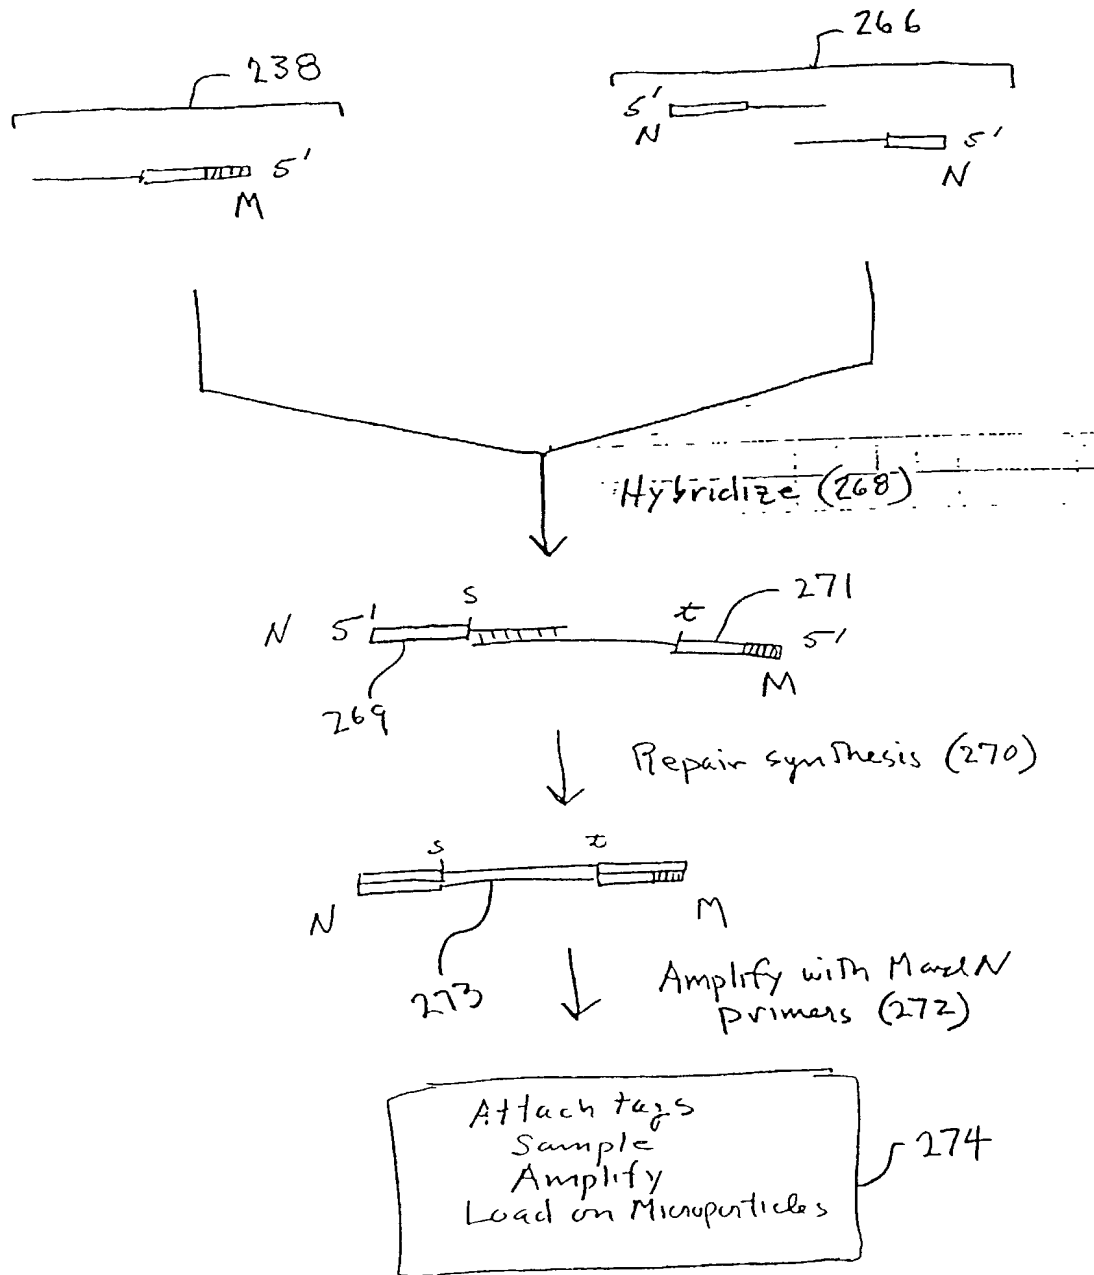 238
266
5' N
5' N
5' M
Hybridize (268)
N 5' s t 271 5'
M
269
Repair synthesis (270)
s t
N M
273
Amplify with M and N
primers (272)
Attach tags
Sample
Amplify
Load on Microparticles
274